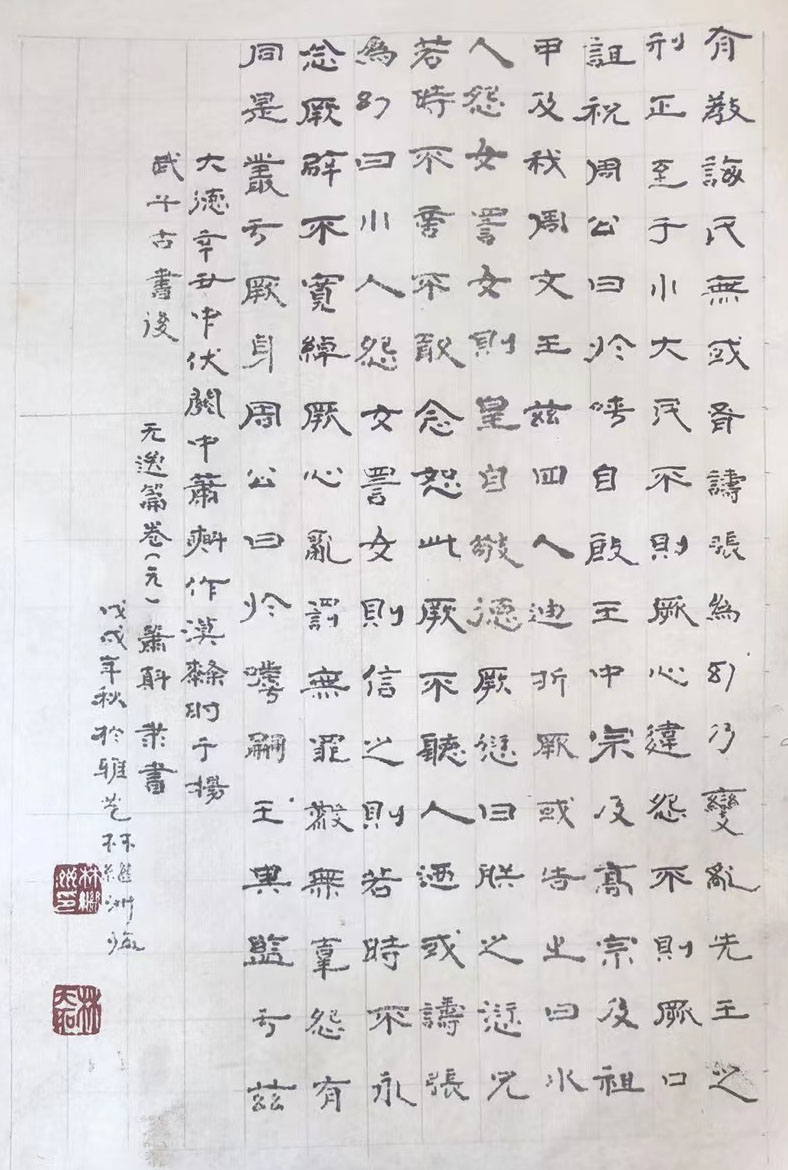 有教誨民無或胥譸張為幻乃變亂先王之
刑正至于小大民不則厥心違怨不則厥口
詛祝周公曰於呼自殷王中宗及高宗及祖
甲及我周文王茲四人迪折厥或告之曰小
人怨女詈女則皇自敬德厥愆曰朕之愆允
若時不啻不敢念恕此厥不聽人廼或譸張
為幻曰小人怨女詈女則信之則若時不永
念厥辟不寬綽厥心亂罰無罪殺無辜怨有
同是叢于厥身周公曰於嘑嗣王其監于茲
大德辛丑中伏關中蕭㪺作漢隸附于揚
武子古書後
无逸篇卷（元）蕭㪺隸書
戊戌年秋於雅苑林繼洲臨